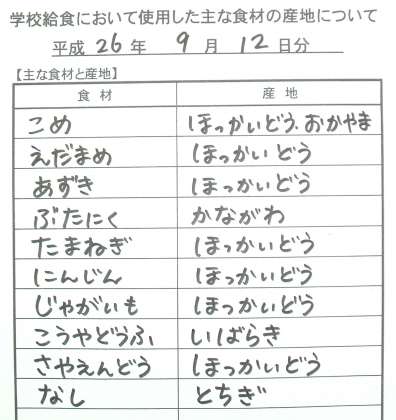 学校給食において使用した主な食材の産地について
平成 26 年 9 月 12 日分
【主な食材と産地】
食材 産地
こめ ほっかいどう、おかやま
えだまめ ほっかいどう
あずき ほっかいどう
ぶたにく かながわ
たまねぎ ほっかいどう
にんじん ほっかいどう
じゃがいも ほっかいどう
こうやどうふ いばらき
さやえんどう ほっかいどう
なし とちぎ